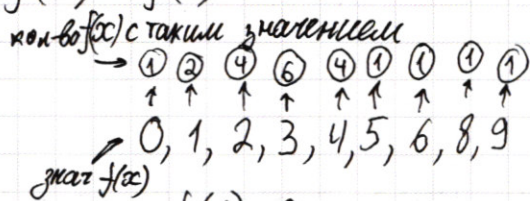 кол-во f(x) с таким значением
→ 1 2 4 6 4 1 1 1 1
↑ ↑ ↑ ↑ ↑ ↑ ↑ ↑ ↑
0, 1, 2, 3, 4, 5, 6, 8, 9
знач f(x)